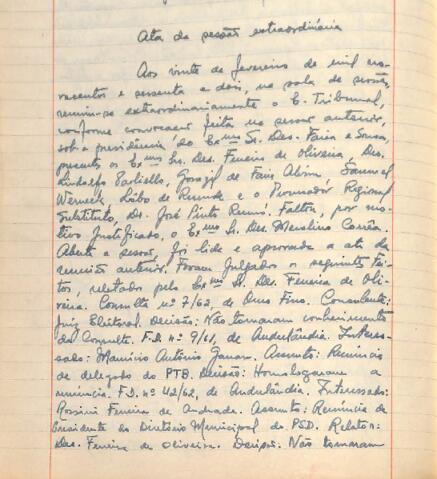 Ata da sessão extraordinária
Aos vinte de fevereiro de mil no-
vecentos e sessenta e dois, na sala de sessões,
reuniu-se extraordinariamente o E. Tribunal,
conforme convocação feita na sessão anterior,
sob a presidência do Exmo Sr. Des. Faria e Sousa,
presentes os Exmos Srs. Des. Ferreira de Oliveira, Des.
Lindolfo Gorazil de Faria Alvim, Samuel
Werneck, Lôbo de Rezende e o Procurador Regional
Substituto, Dr. José Pinto Renó. Faltou, por mo-
tivo justificado, o Exmo Sr. Des. Merolino Corrêa.
Aberta a sessão, foi lida e aprovada a ata da
reunião anterior. Foram julgados os seguintes fei-
tos, relatados pelo Exmo Sr. Des. Ferreira de Oli-
veira. Consulta nº 2/62, de Ouro Fino. Consulente:
Juiz Eleitoral. Decisão: Não tomaram conhecimento
da Consulta. F.D. nº 9/61, de Andrelândia. Interes-
sado: Mauricio Antônio. Assunto: Renúncia
de delegado do PTB. Decisão: Homologaram a
renúncia. F.D. nº 42/62, de Andrelândia. Interessado:
Rossini Ferreira de Andrade. Assunto: Renúncia de
Presidente do Diretório Municipal do PSD. Relator:
Des. Ferreira de Oliveira. Decisão: Não tomaram